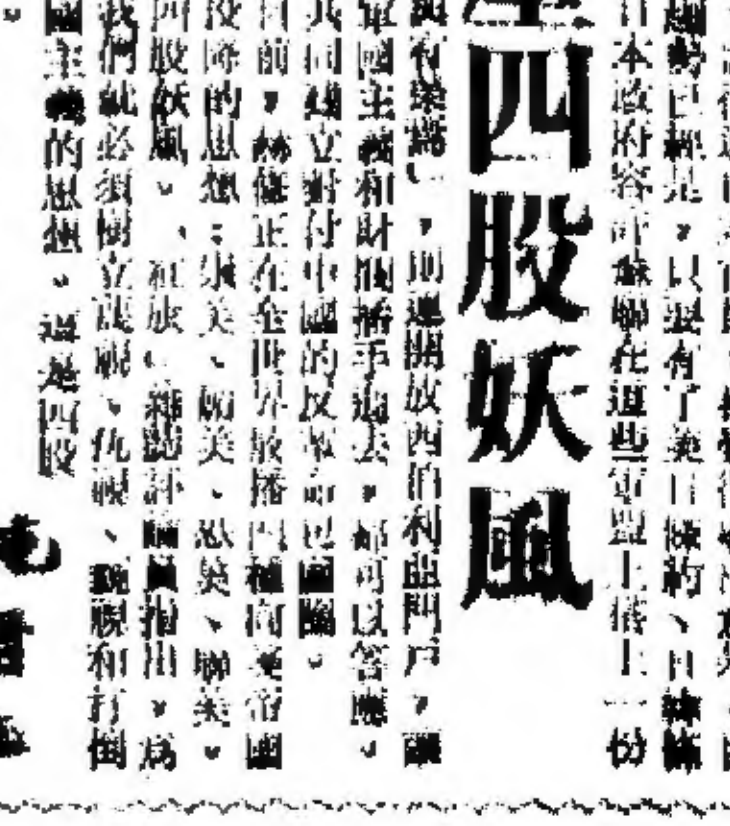 趨勢已經是，只要有了美日條約、日韓條
日本政府容許蘇聯在這些軍盟上搭上一份
四股妖風
與有榮焉」，則連開放西伯利亞門戶，讓
軍國主義和財閥插手過去，都可以答應。
共同建立對付中國的反革命包圍圈。
目前，蘇修正在全世界散播四種向美帝國
投降的思想：崇美、媚美、恐美、聯美。
四股妖風。紅旗雜誌評論員指出，為
我們就必須樹立蔑視、仇視、鄙視和打倒
國主義的思想。這是四股